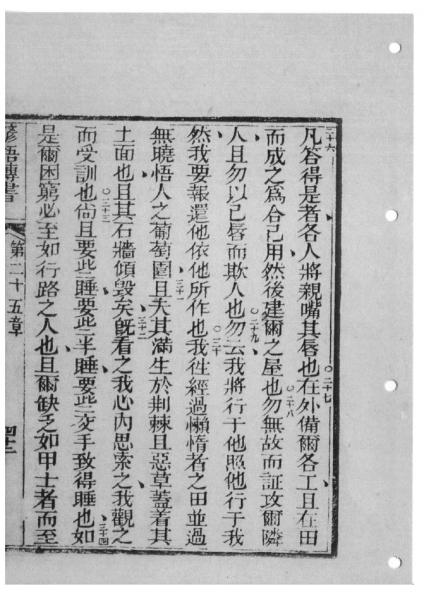 二十六凡答得是者各人將親嘴其唇也○二十七在外備爾各工且在田
而成之為合己用然後建爾之屋也○二十八勿無故而証攻爾隣
人且勿以己唇而欺人也○二十九勿云我將行于他照他行于我
然我要報還他依他所作也○三十我徃經過懶惰者之田並過
無曉悟人之葡萄園三十一且夫其滿生於荆棘且惡草蓋着其
土面也且其石牆傾毀矣三十二旣看之我心內思索之我觀之
而受訓也○三十三尚且要些睡要些半睡要些交手致得睡也三十四如
是爾困窮必至如行路之人也且爾缺乏如甲士者而至
諺語傳書 第二十五章